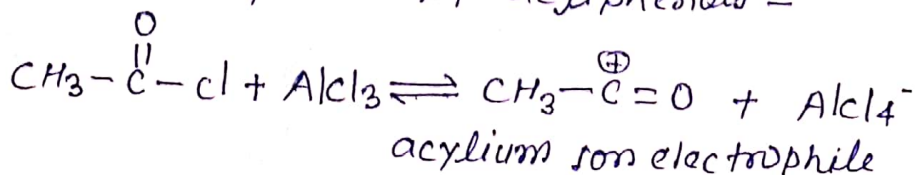 O
||
CH3-C-Cl + AlCl3 ⇌ CH3-C⊕=O + AlCl4⁻
acylium ion electrophile